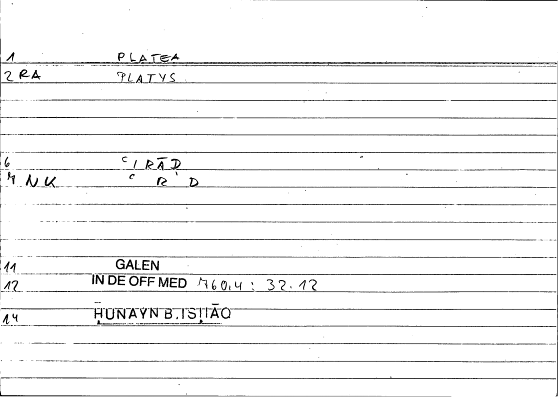 1 PLATEA
2 RA PLATYS
6 ʿIRĀD
7 NK ʿ R ʾ D
11 GALEN
12 IN DE OFF MED 760.4 : 32.12
14 ḤUNAYN B. ISḤĀQ